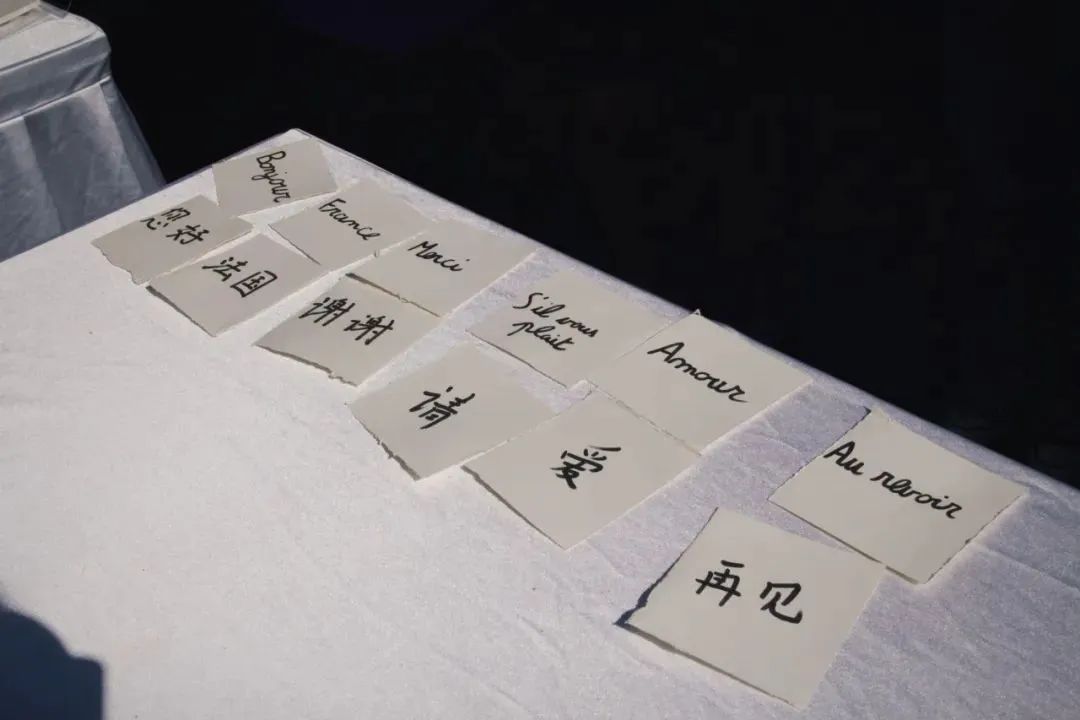 Bonjour
您好
France
法国
Merci
谢谢
S'il vous
plait
请
Amour
爱
Au revoir
再见